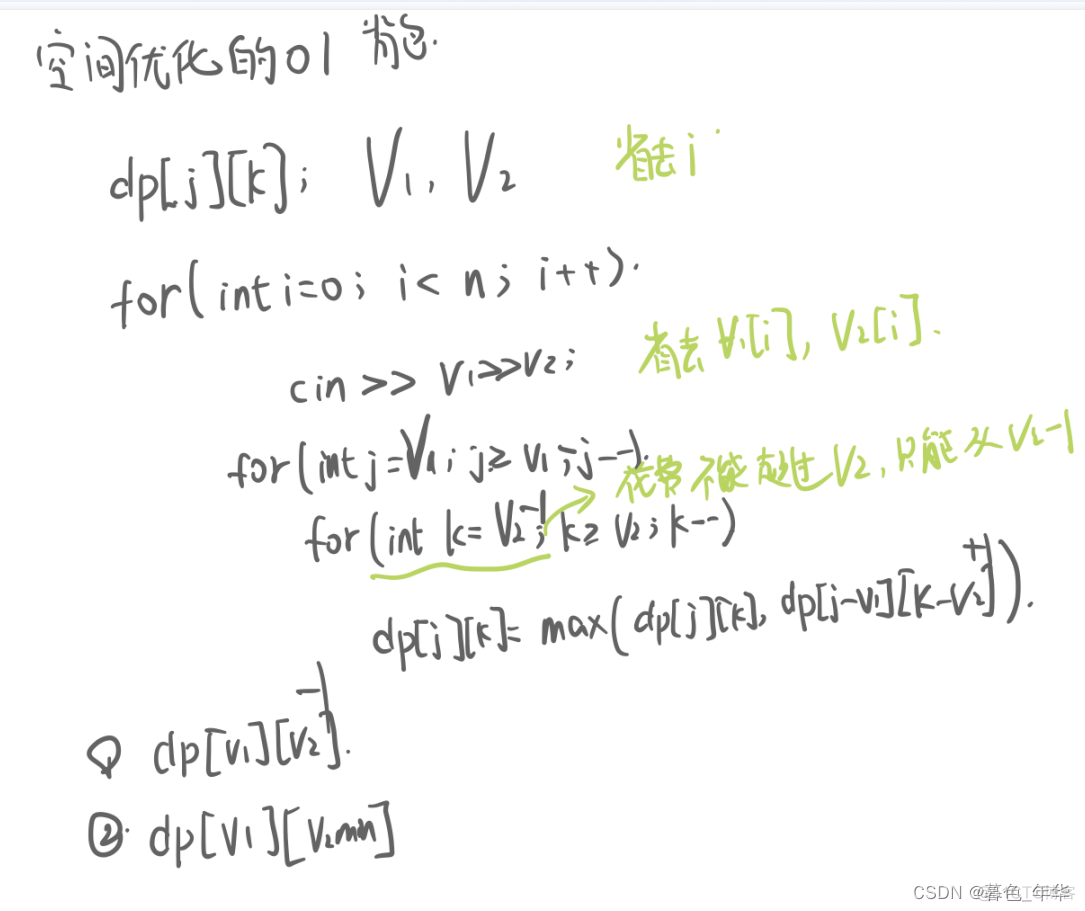 空间优化的01背包.
dp[j][k]; V1, V2 省去i
for(int i=0; i<n; i++).
cin >> v1>>v2; 省去 V1[i], V2[i].
for(int j=V1; j≥v1; j--). 花费不能超过V2,只能从V2-1
for(int k=V2-1; k≥v2; k--)
dp[j][k]= max(dp[j][k], dp[j-v1][k-v2]+1).
① dp[v1][v2-1].
②. dp[v1][v2min]
CSDN @暮色_年华